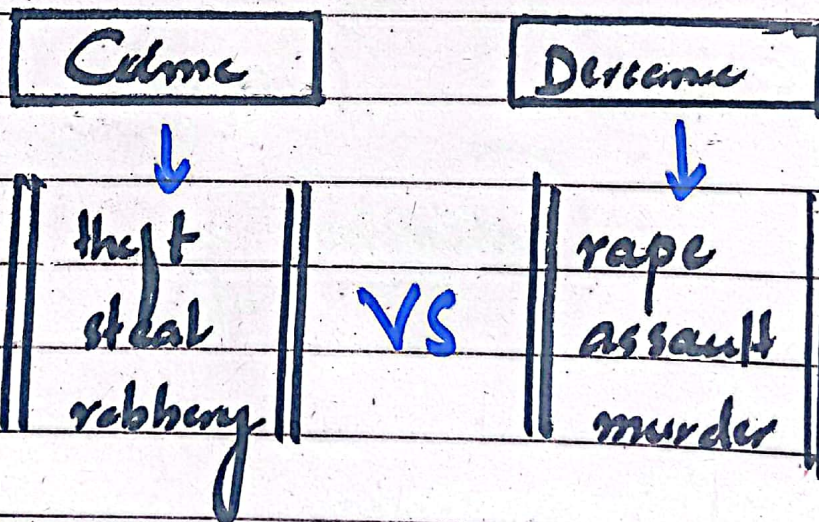 Crime
theft
steal
robbery
VS
rape
assault
murder